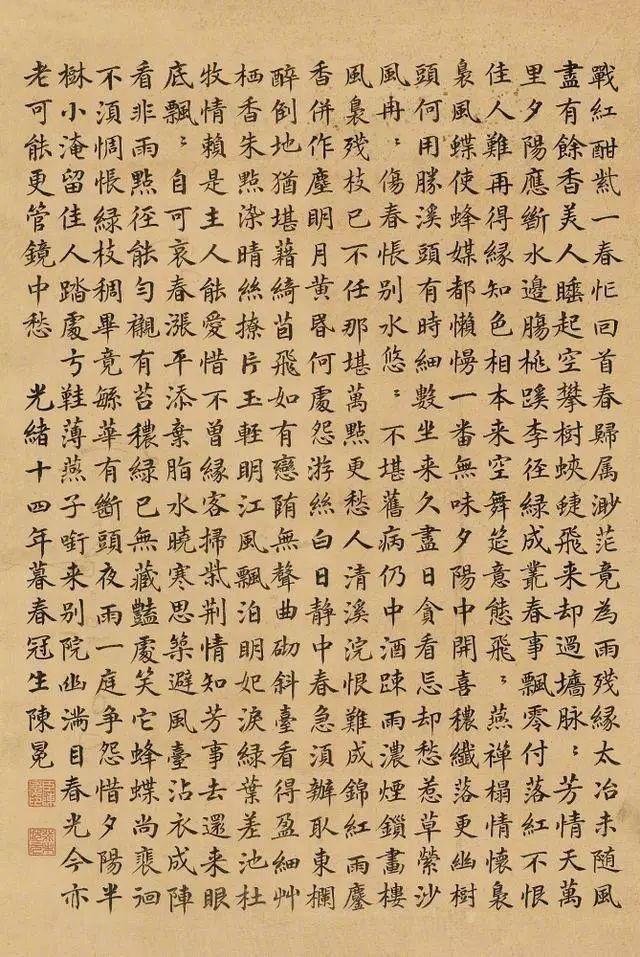 戰紅酣紫一春忙回首春歸属渺茫竟為雨残緣太冶未随風
盡有餘香美人睡起空攀樹蛺蜨飛来却過墻脉〻芳情天萬
里夕陽應斷水邊膓桃蹊李徑綠成叢春事飄零付落紅不恨
佳人難再得緣知色相本来空舞筵意態飛〻燕禅榻情懷裊
裊風蝶使蜂媒都懶慢一番無味夕陽中開喜穠纖落更幽樹
頭何用勝溪頭有時細數坐来久盡日貪看忌却愁惹草縈沙
風冉〻傷春悵別水悠〻不堪舊病仍中酒踈雨濃煙鎖畫樓
風裊残枝已不任那堪萬點更愁人清溪浣恨難成錦紅雨鏖
香併作塵明月黃昬何處怨游絲白日靜中春急湏辦取東欄
醉倒地猶堪藉綺茵飛如有戀隋無聲曲砌斜臺看得盈細艸
栖香朱點染晴絲撩片玉輕明江風飄泊明妃淚綠葉差池杜
牧情賴是主人能愛惜不曾緣客掃紫荆情知芳事去還来眼
底飄〻自可哀春漲平添棄脂水曉寒思築避風臺沾衣成陣
看非雨點徑能勻襯有苔穠綠已無藏豔處笑它蜂蝶尚裵徊
不湏惆悵綠枝稠畢竟緐華有斷頭夜雨一庭争怨惜夕陽半
楙小淹留佳人踏處弓鞋薄燕子銜来別院幽満目春光今亦
老可能更管鏡中愁 光緒十四年暮春冠生陳冕